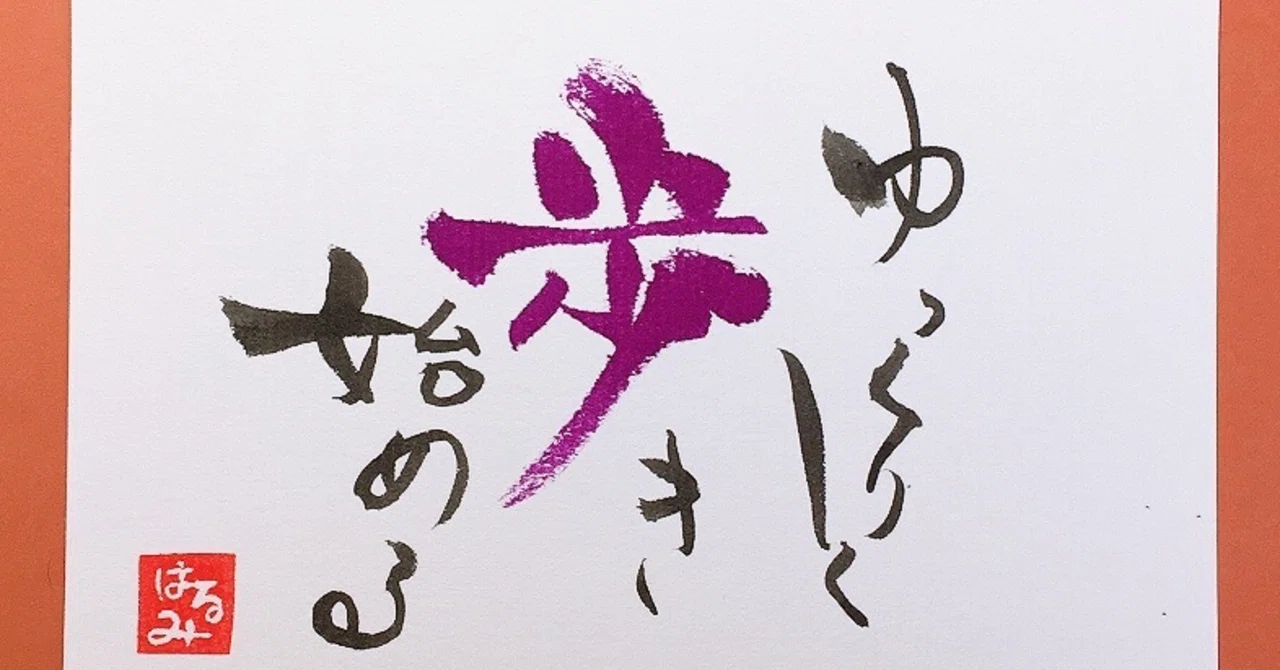 ゆっくりと
歩き
始める
はるみ